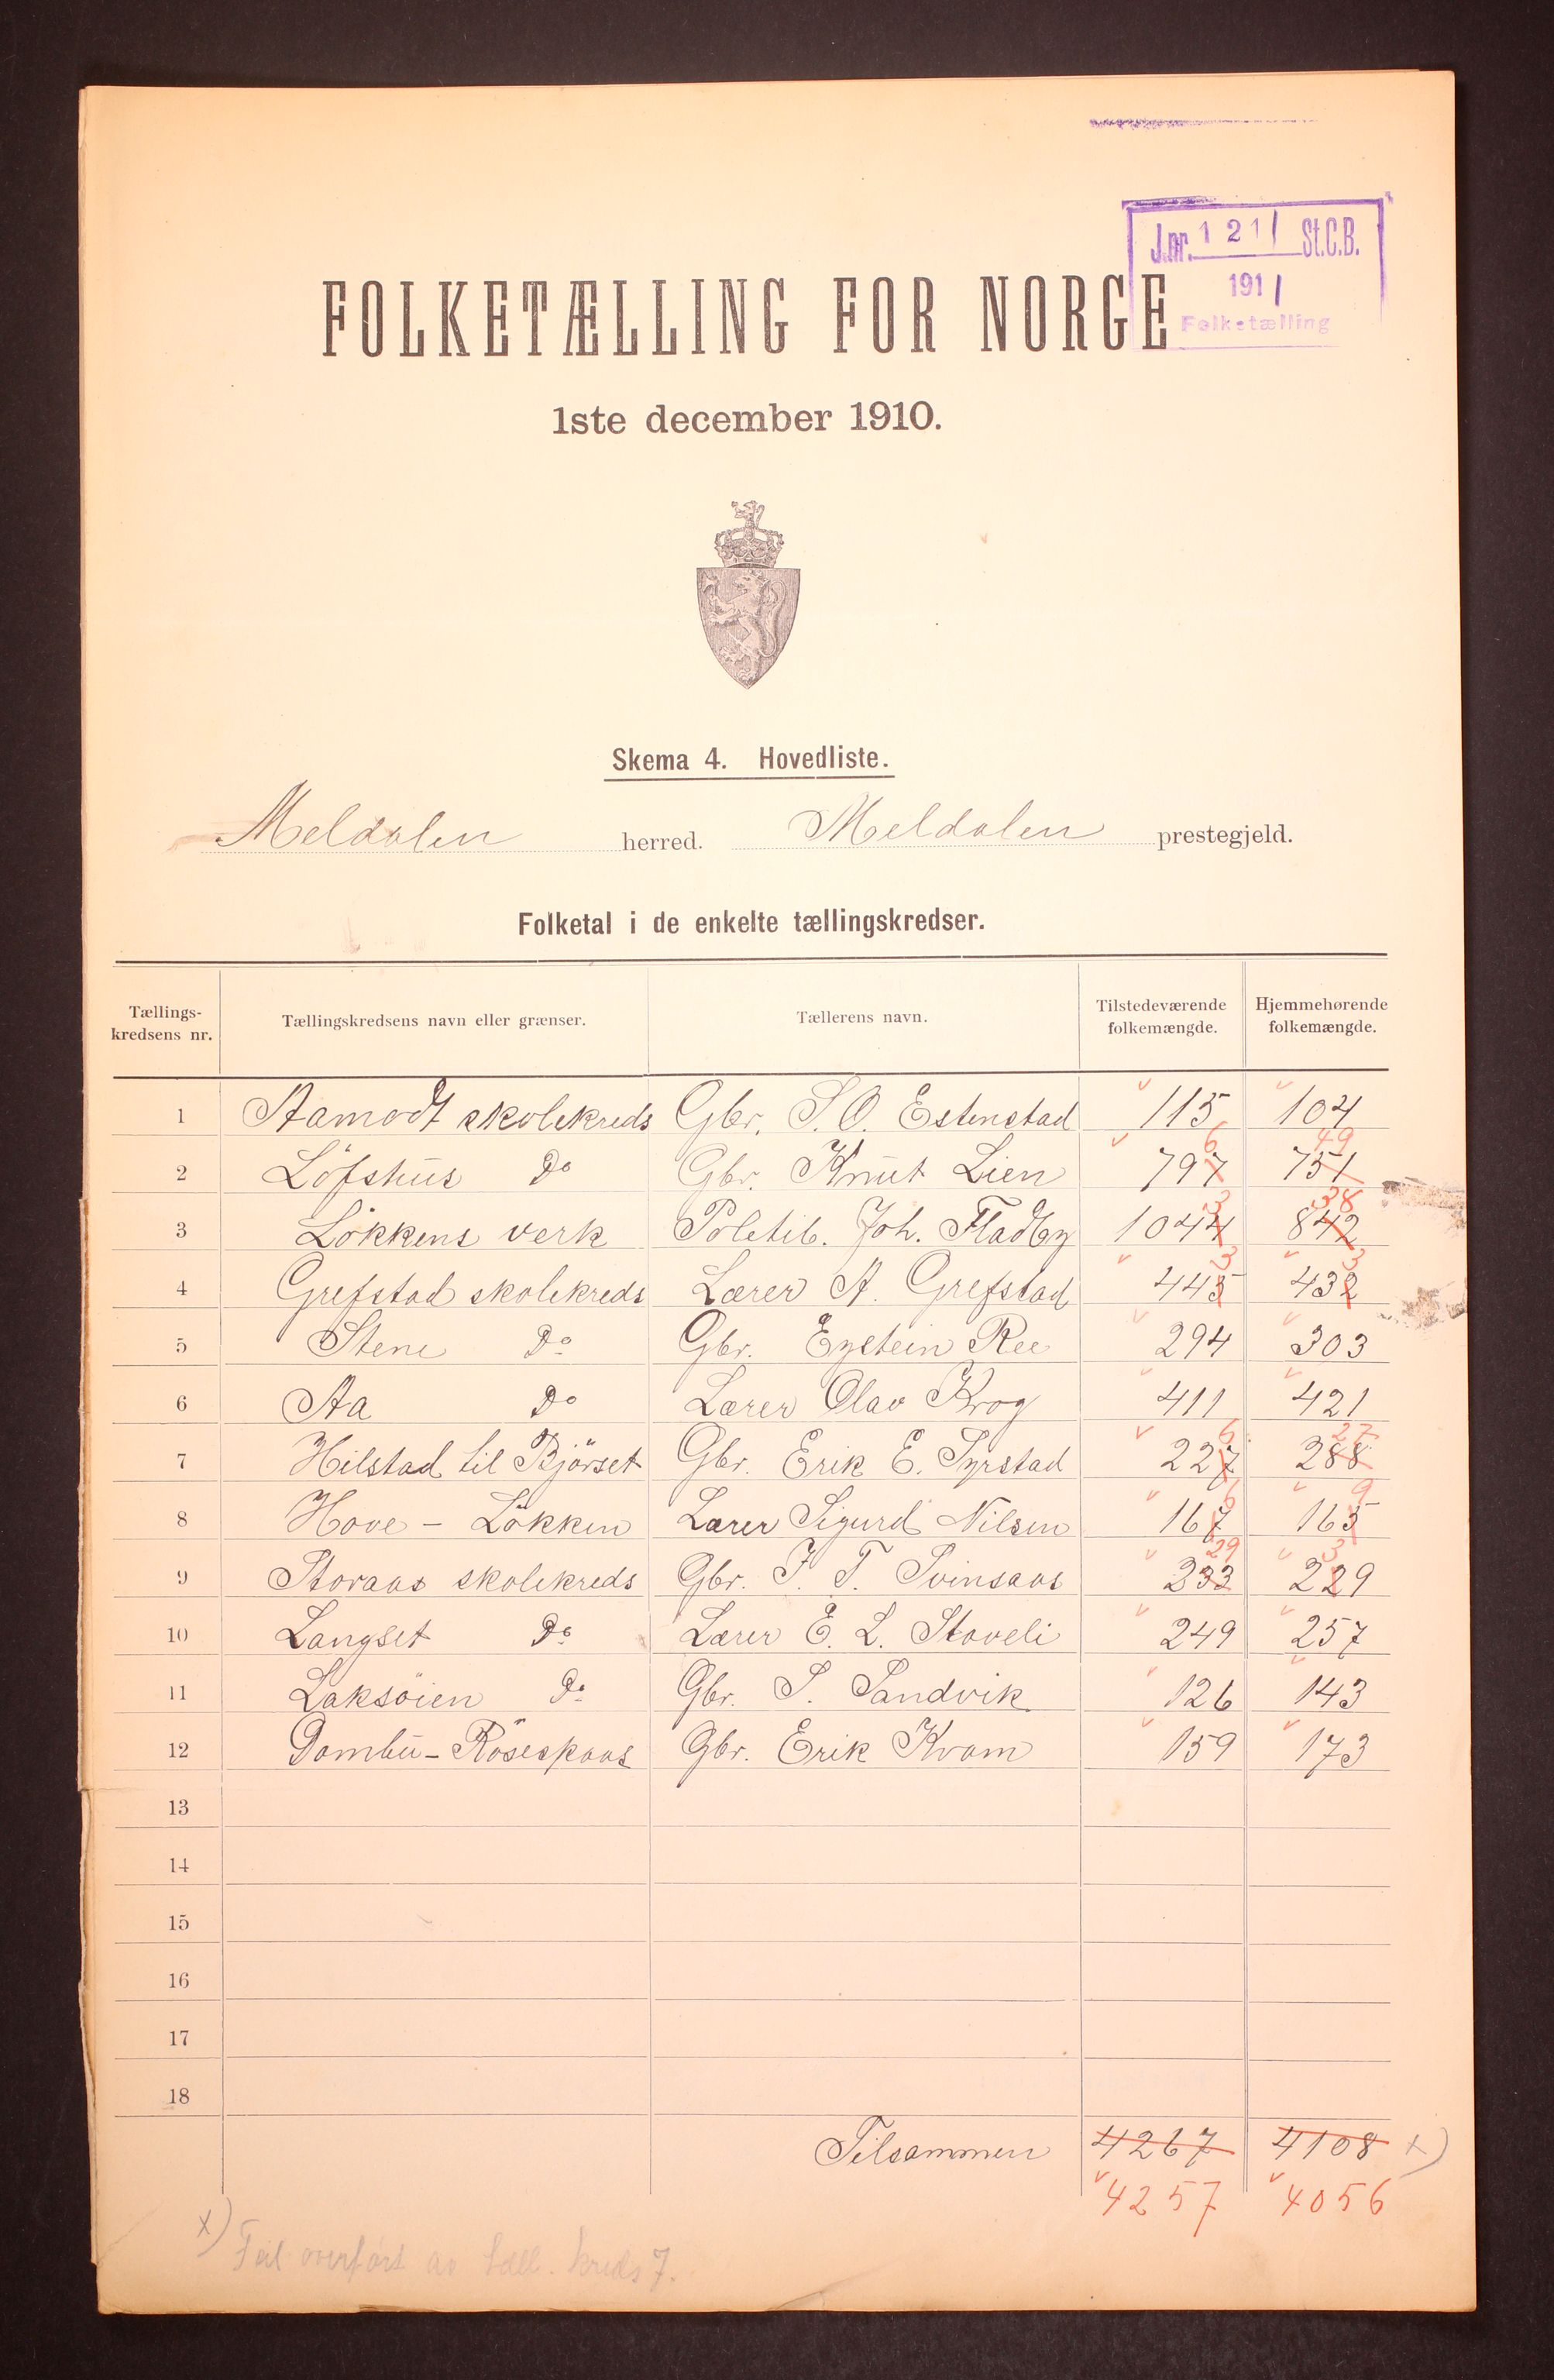 J.nr. 121/ St.C.B.
1911
Folketælling
FOLKETÆLLING FOR NORGE
1ste december 1910.
Skema 4. Hovedliste.
Meldalen herred. Meldalen prestegjeld.
Folketal i de enkelte tællingskredser.
Tællings-kredsens nr. Tællingskredsens navn eller grænser. Tællerens navn. Tilstedeværende folkemængde. Hjemmehørende folkemængde.
1 Aamodt skolekreds Gbr. S. O. Estenstad 115 104
6 49
2 Löfshus Do Gbr. Knut Lien 797 751
3 38
3 Lökkens verk Poletib. Joh. Fladby 1044 842
3 3
4 Grefstad skolekreds Lærer A. Grefstad 445 432
5 Stene Do Gbr. Eystein Ree 294 303
6 Aa Do Lærer Olav Krog 411 421
6 27
7 Hilstad til Björset Gbr. Erik E. Syrstad 227 288
6 9
8 Hove - Løkken Lærer Sigurd Nilsen 167 165
29 3
9 Storaas skolekreds Gbr. J. T. Svinsaas 233 229
10 Langset Do Lærer E. L. Stoveli 249 257
11 Laksöien Do Gbr. S. Sandvik 126 143
12 Dombu - Röseskaas Gbr. Erik Kvam 159 173
13
14
15
16
17
18
Tilsammen 4267 4108 x)
4257 4056
x) Feil overført av tæll. kreds 7.